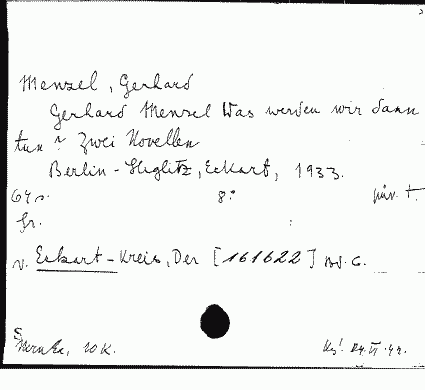 Menzel, Gerhard
Gerhard Menzel Was werden wir dann
tun? Zwei Novellen
Berlin-Steglitz, Eckart, 1933.
64 s. 8°
gr.
v. Eckart-Kreis, Der [161622] Bd. 6.
10 K.